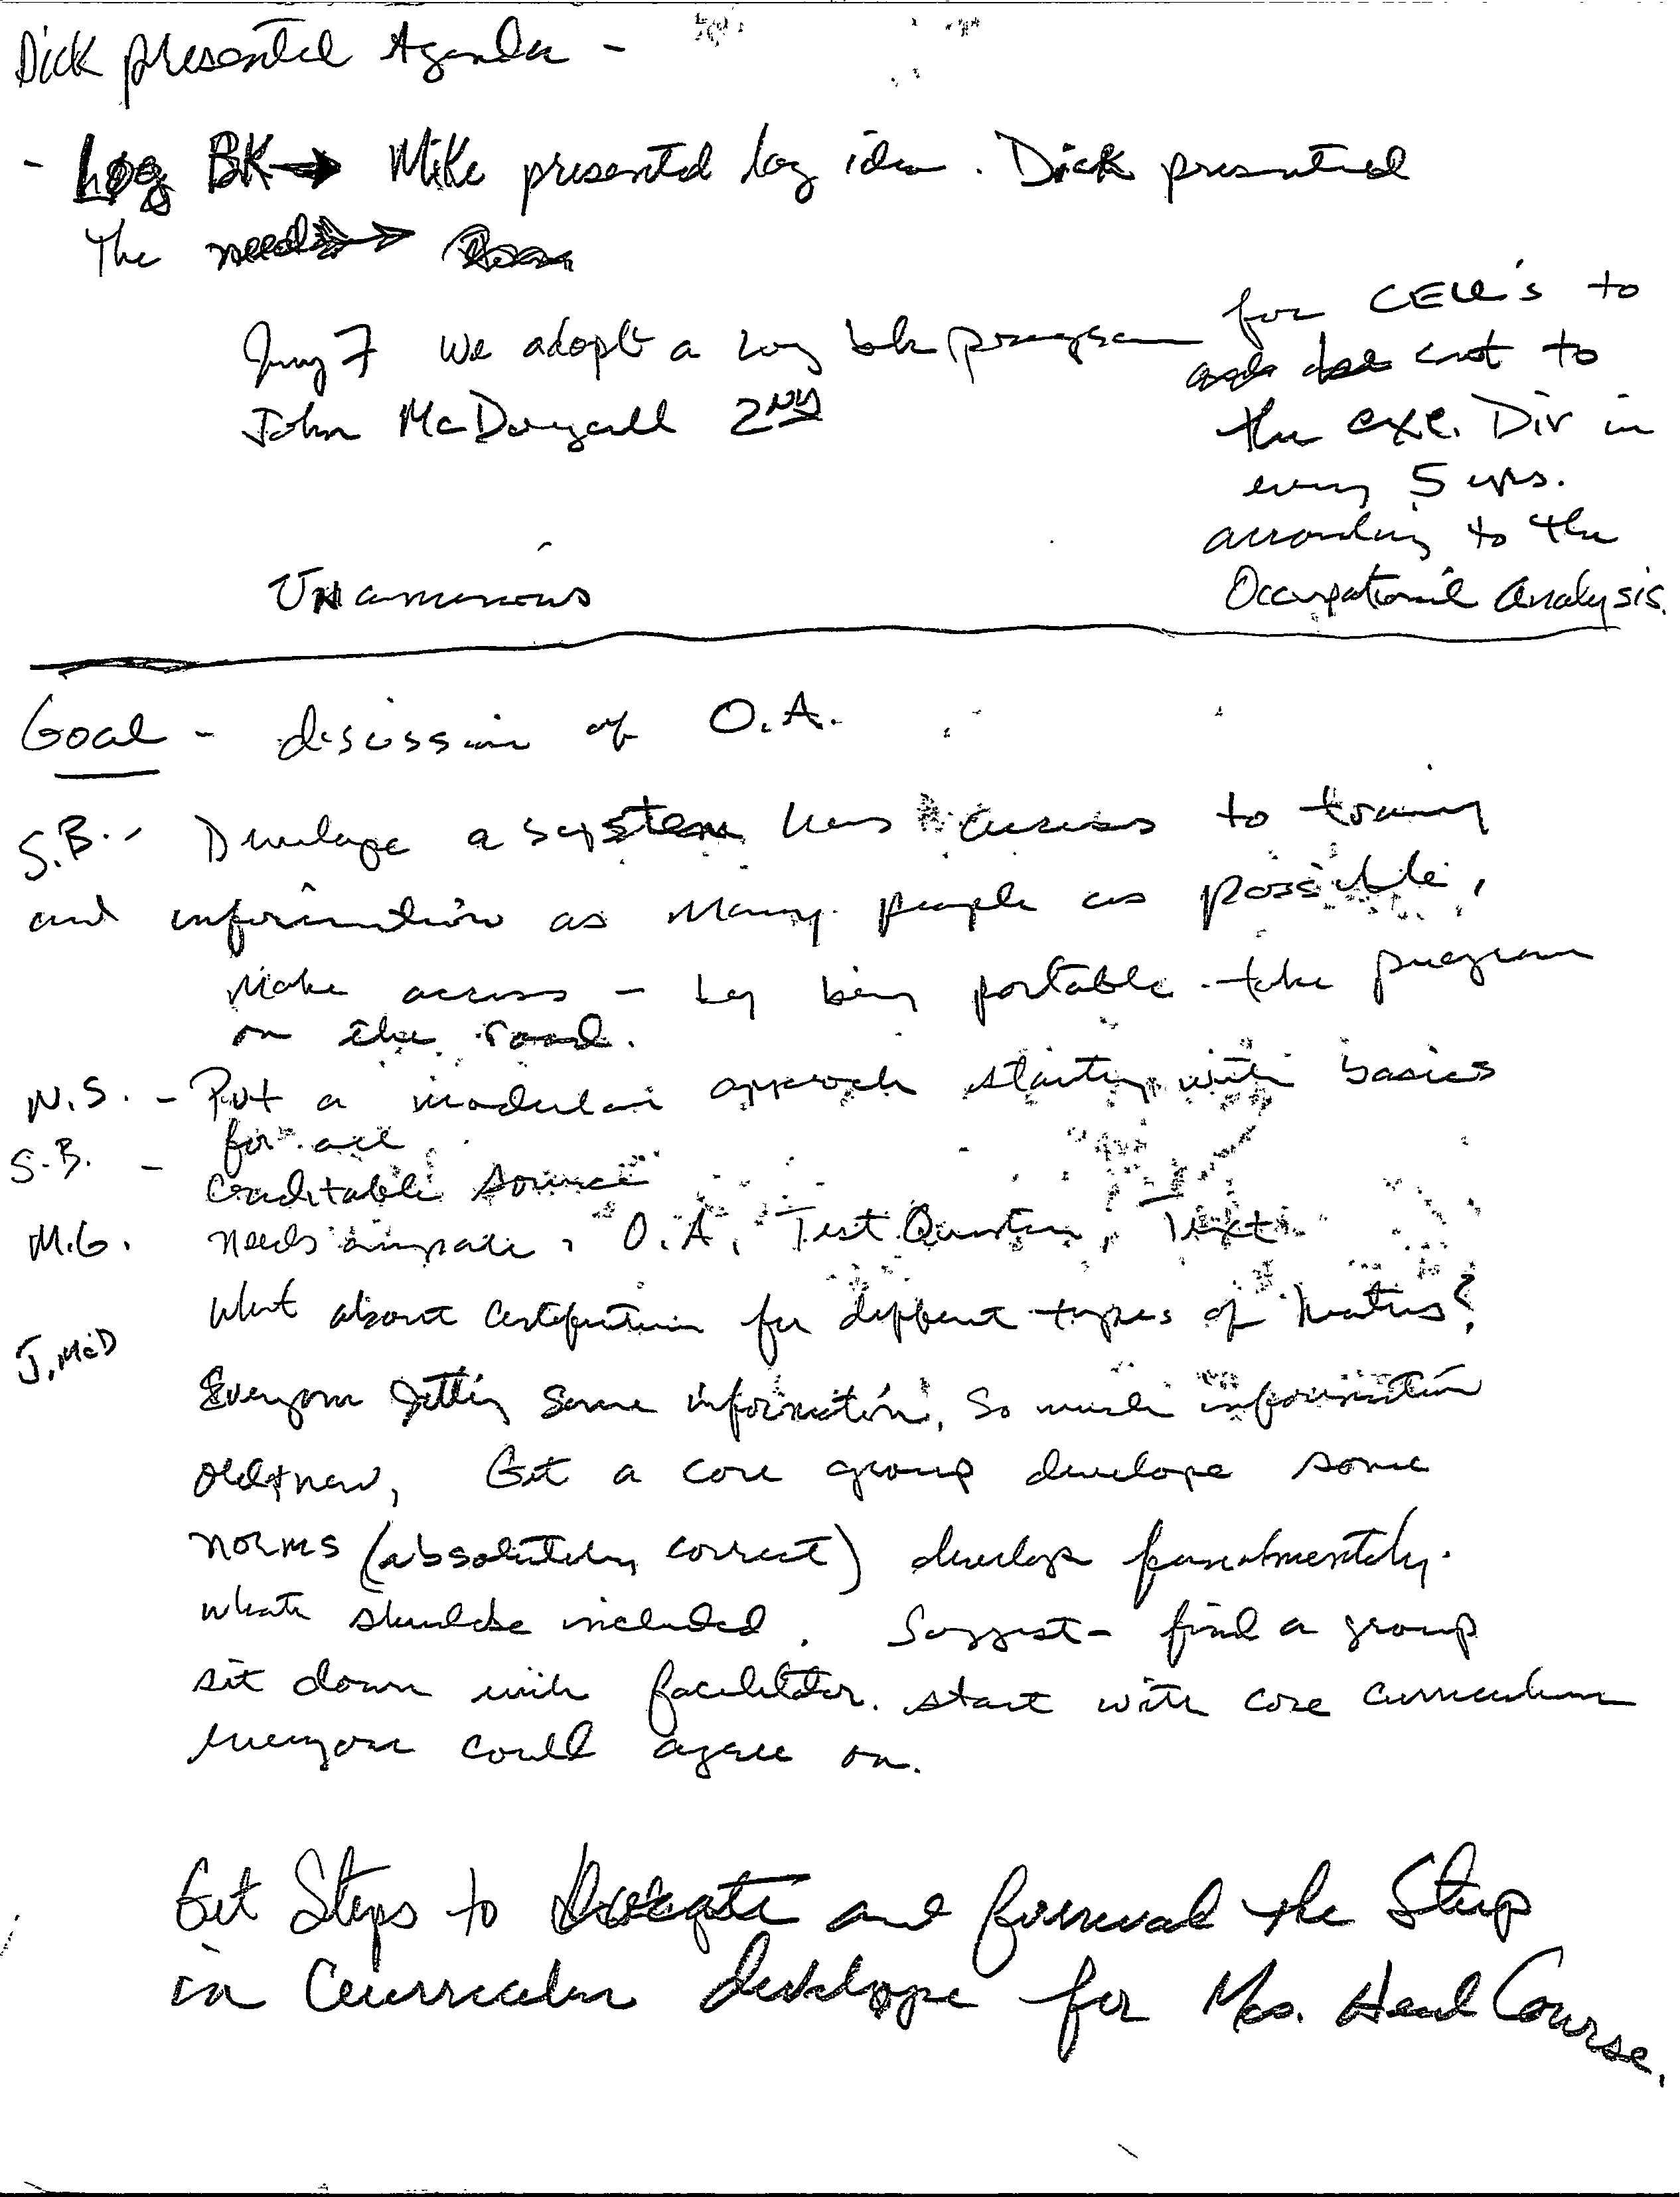 Dick presented Agenda -
- Log BK → Mike presented log idea. Dick presented
The need →
Jerry 7 We adopt a log bk program
John McDougall 2ND
for CEU's to
cost to
the exe. Div in
every 5 yrs.
according to the
Occupational Analysis.
Unamimous
Goal - discussion of O.A.
S.B. - Develope a system has access to training
and information as many people as possible,
Make access - by being portable - take program
on the road.
N.S. - Put a modular approach starting with basics
for all
S.B. - Creditable source
M.G. needs O.A, Test Question, Text
What about certification for different types of heaters?
J. McD
Everyone getting same information, So much information
old & new, Get a core group develope some
norms (absolutely correct) develope
whats should be included. Suggest - find a group
sit down with facilitator. start with core curriculum
everyone could agree on.
Get Steps to and the Step
in Curriculum develope for Mas. Heat Course.